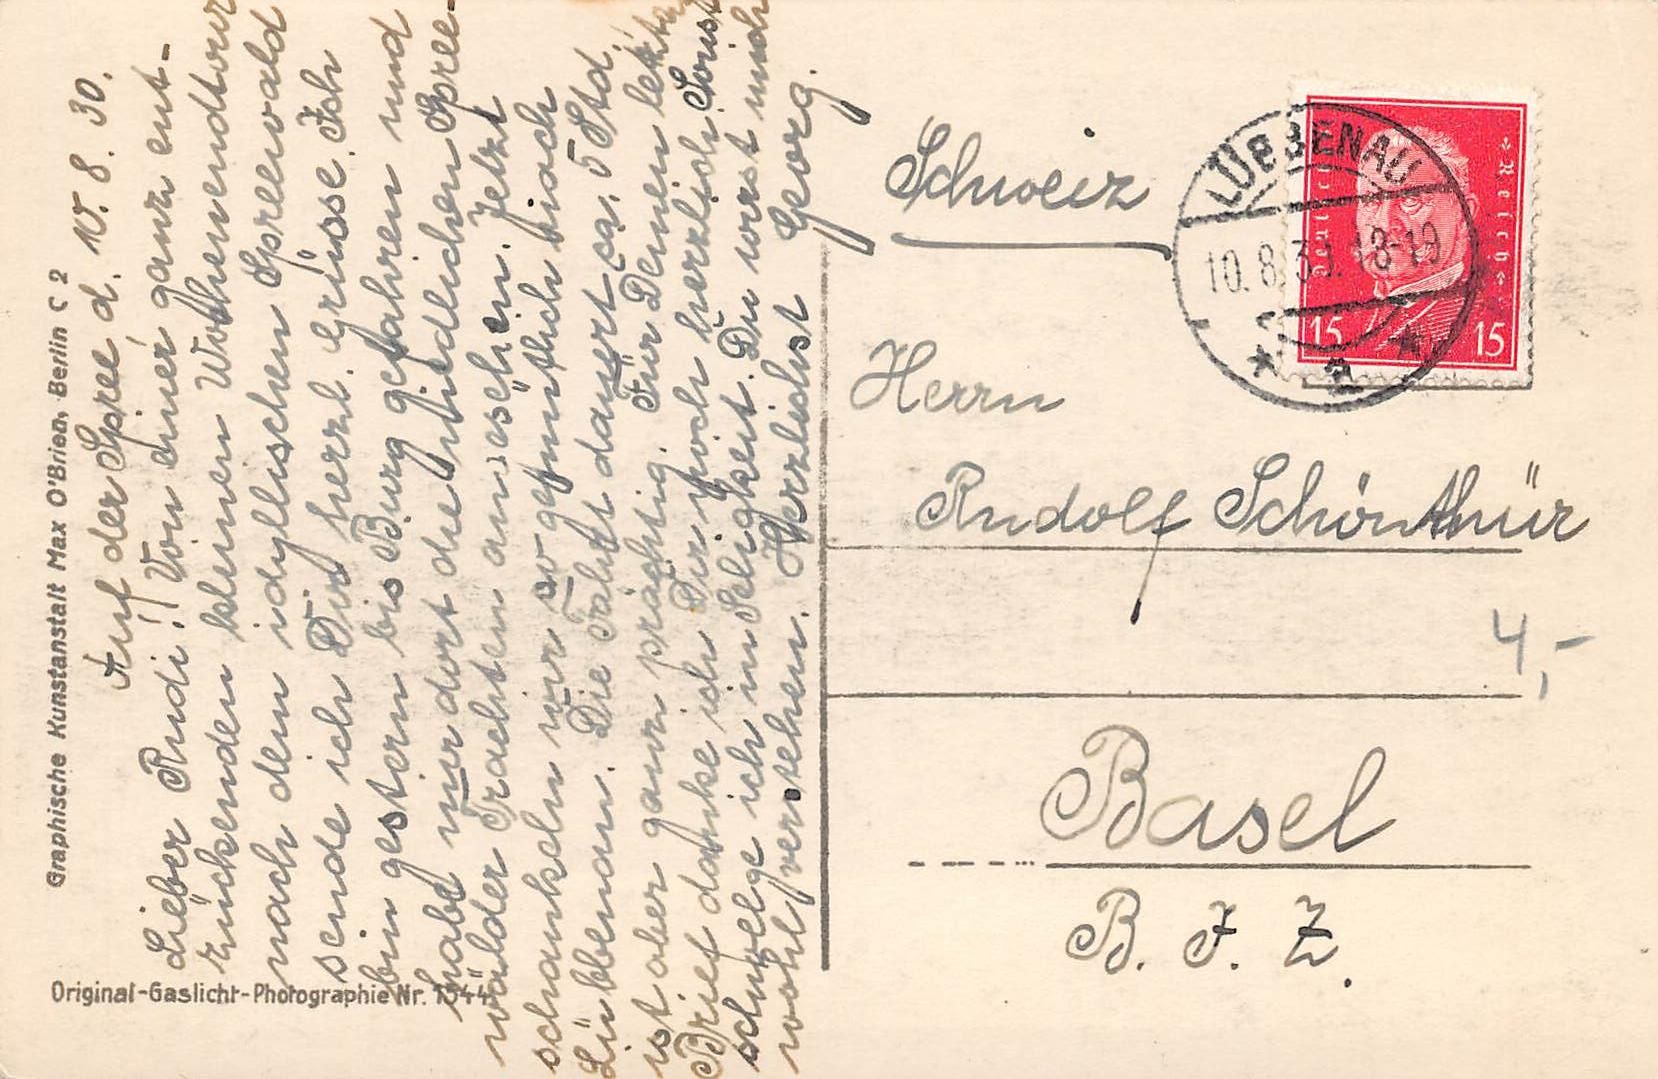 Auf der Spree, d. 10. 8. 30.
Lieber Rudi!! Von einer ganz ent-
zückenden kleinen Wochenendtour
nach dem idyllischen Spreewald
sende ich Dir herzl. Grüsse. Ich
bin gestern bis Burg gefahren und
habe mir dort die niedlichen Spree-
wälder Trachten angesehen. Jetzt
schaukeln wir so gemütlich nach
Lübbenau. Die Fahrt dauert ca. 5 Std.
ist aber ganz prächtig. Für Deinen letzten
Brief danke ich Dir noch herzlich. Sonst
schwelge ich in Seligkeit. Du wirst mich
wohl verstehen. Herzlichst Georg.
Graphische Kunstanstalt Max O'Brien, Berlin C 2
Original-Gaslicht-Photographie Nr. 1544
Schweiz
Herrn
Rudolf Schönthür
Basel
B. F. Z.
4,-
LÜBBENAU
10.8.30. 18-19
Deutsches Reich
15 15